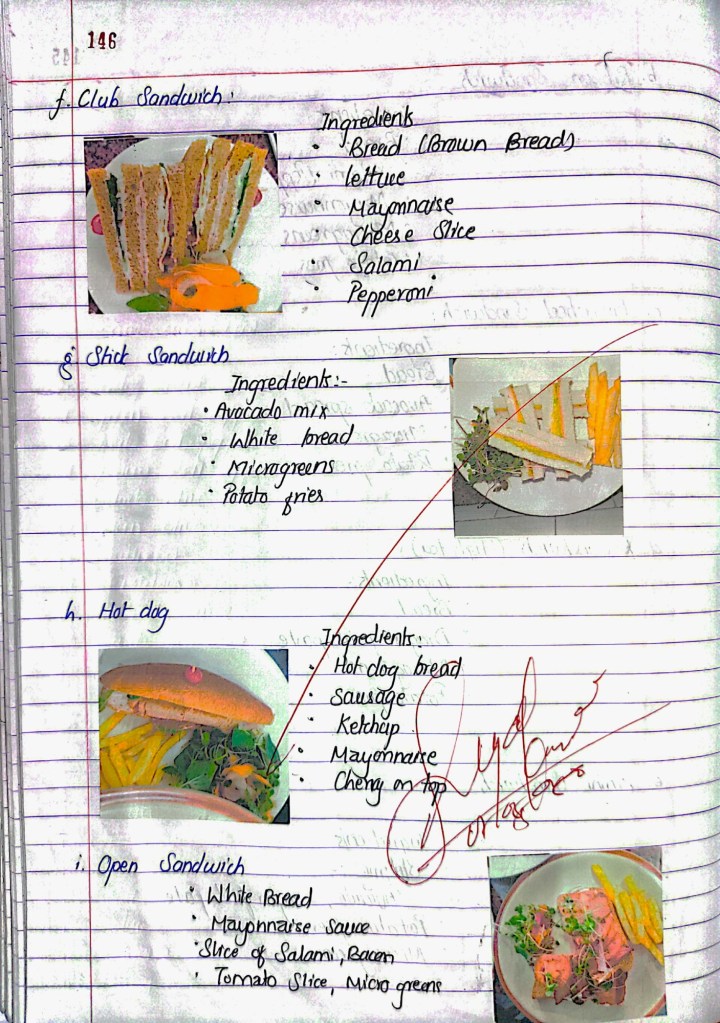 146
f. Club Sandwich:
Ingredients
• Bread (Brown Bread)
• lettuce
• Mayonnaise
• Cheese Slice
• Salami
• Pepperoni
g Stick Sandwich
Ingredients:-
• Avocado mix
• White bread
• Microgreens
• Potato fries
h. Hot dog
Ingredients:
• Hot dog bread
• Sausage
• Ketchap
• Mayonnaise
• on top
i. Open Sandwich
• White Bread
• Mayonnaise Sauce
• Slice of Salami, Bacon
• Tomato Slice, Micro greens